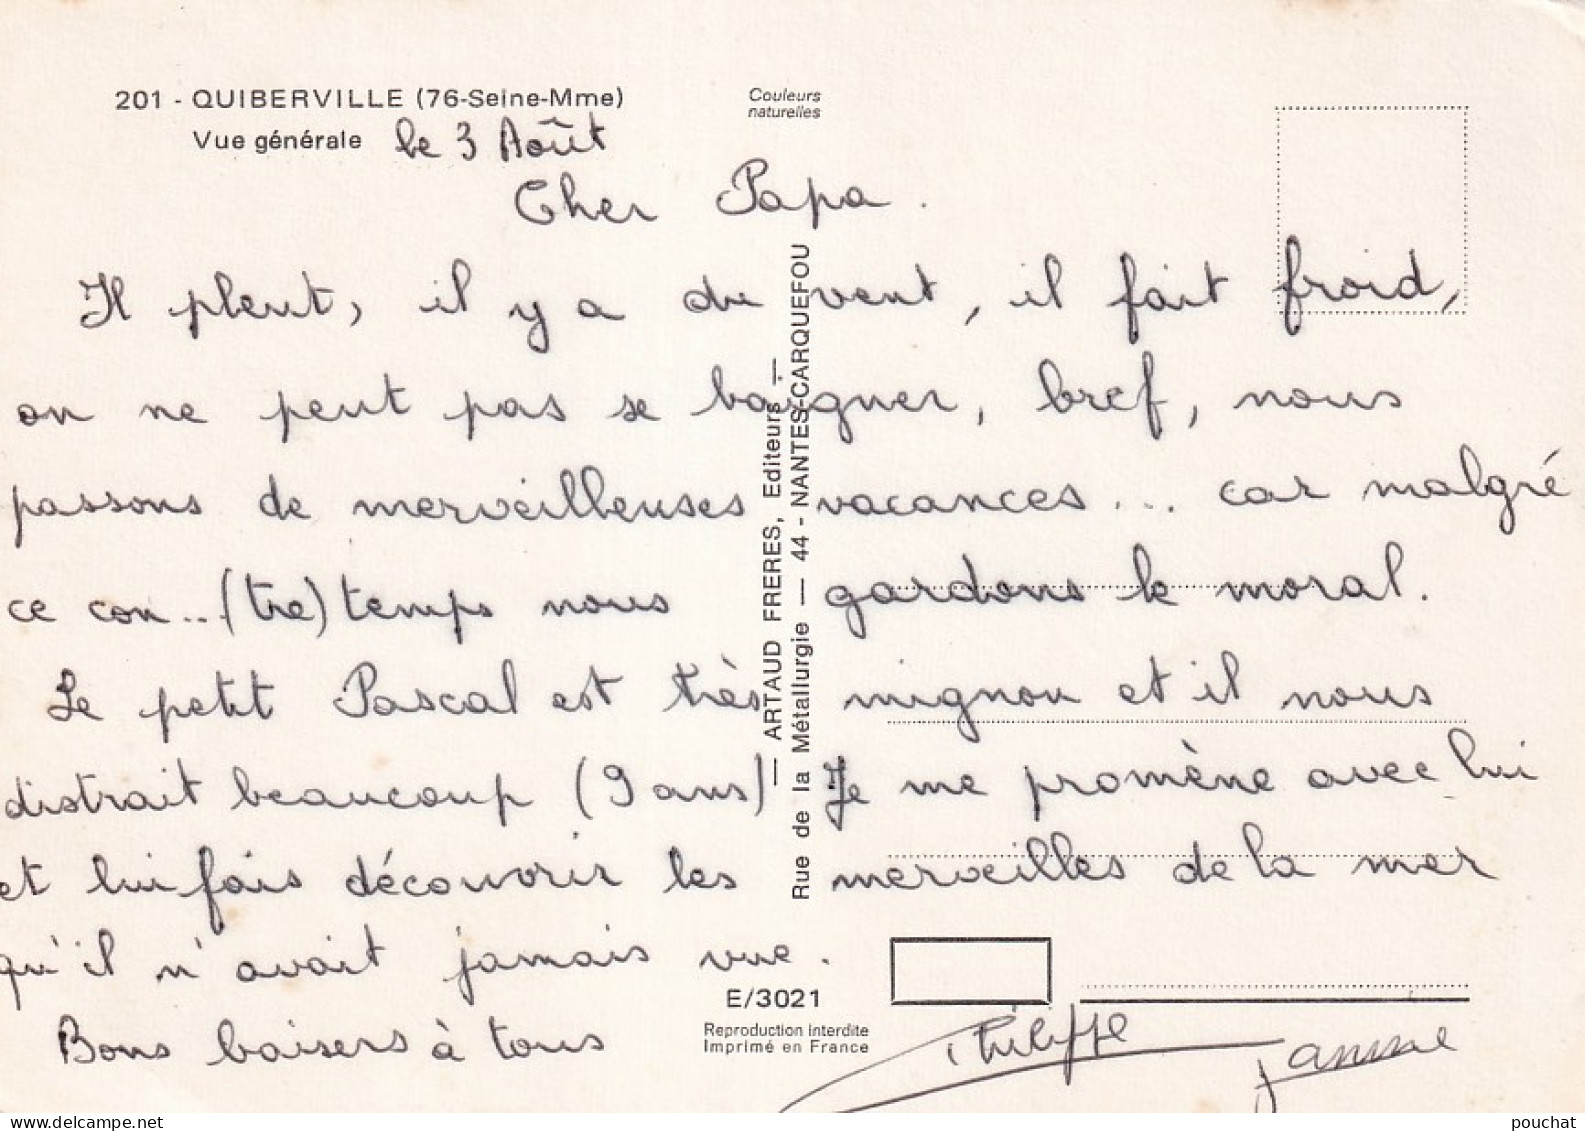 201 - QUIBERVILLE (76-Seine-Mme)
Vue générale le 3 Août
Couleurs
naturelles
Cher Papa.
Il pleut, il y a du vent, il fait froid,
on ne peut pas se baigner, bref, nous
passons de merveilleuses vacances... car malgré
ce con..(tre)temps nous gardons le moral.
Le petit Pascal est très mignon et il nous
distrait beaucoup (9 ans) Je me promène avec lui
et lui fais découvrir les merveilles de la mer
qu'il n'avait jamais vue.
Bons baisers à tous
Philippe
Janine
— ARTAUD FRERES, Editeurs —
Rue de la Métallurgie — 44 - NANTES-CARQUEFOU
E/3021
Reproduction interdite
Imprimé en France
pouchat